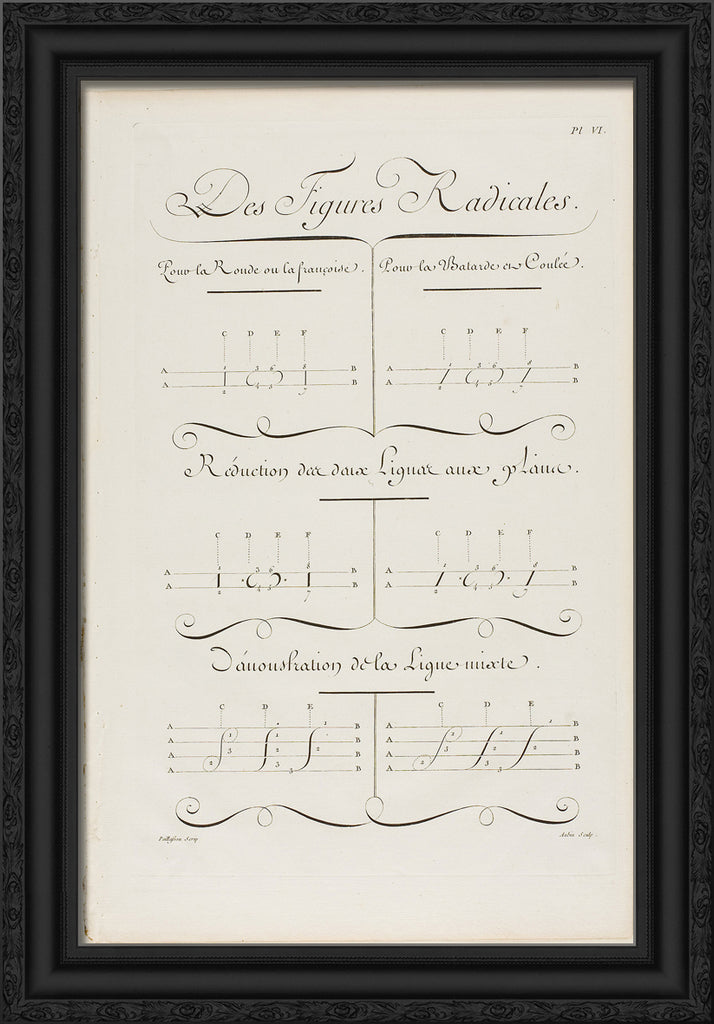 Pl. VI.
Des Figures Radicales.
Pour la Ronde ou la françoise. Pour la Batarde et Coulée.
C D E F C D E F
A 1 3 6 8 B A 1 3 6 8 B
A 2 4 5 7 B A 2 4 5 7 B
Réduction des deux Lignes aux pleins.
C D E F C D E F
A 1 3 6 8 B A 1 3 6 8 B
A 2 4 5 7 B A 2 4 5 7 B
Démonstration de la Ligne mixte.
C D E C D E
A B A 1 B
A 1 1 1 B A 2 1 B
A 3 2 2 B A 3 2 2 B
A 2 3 3 B A 2 3 3 B
Paillasson Scrip Aubin Sculp.